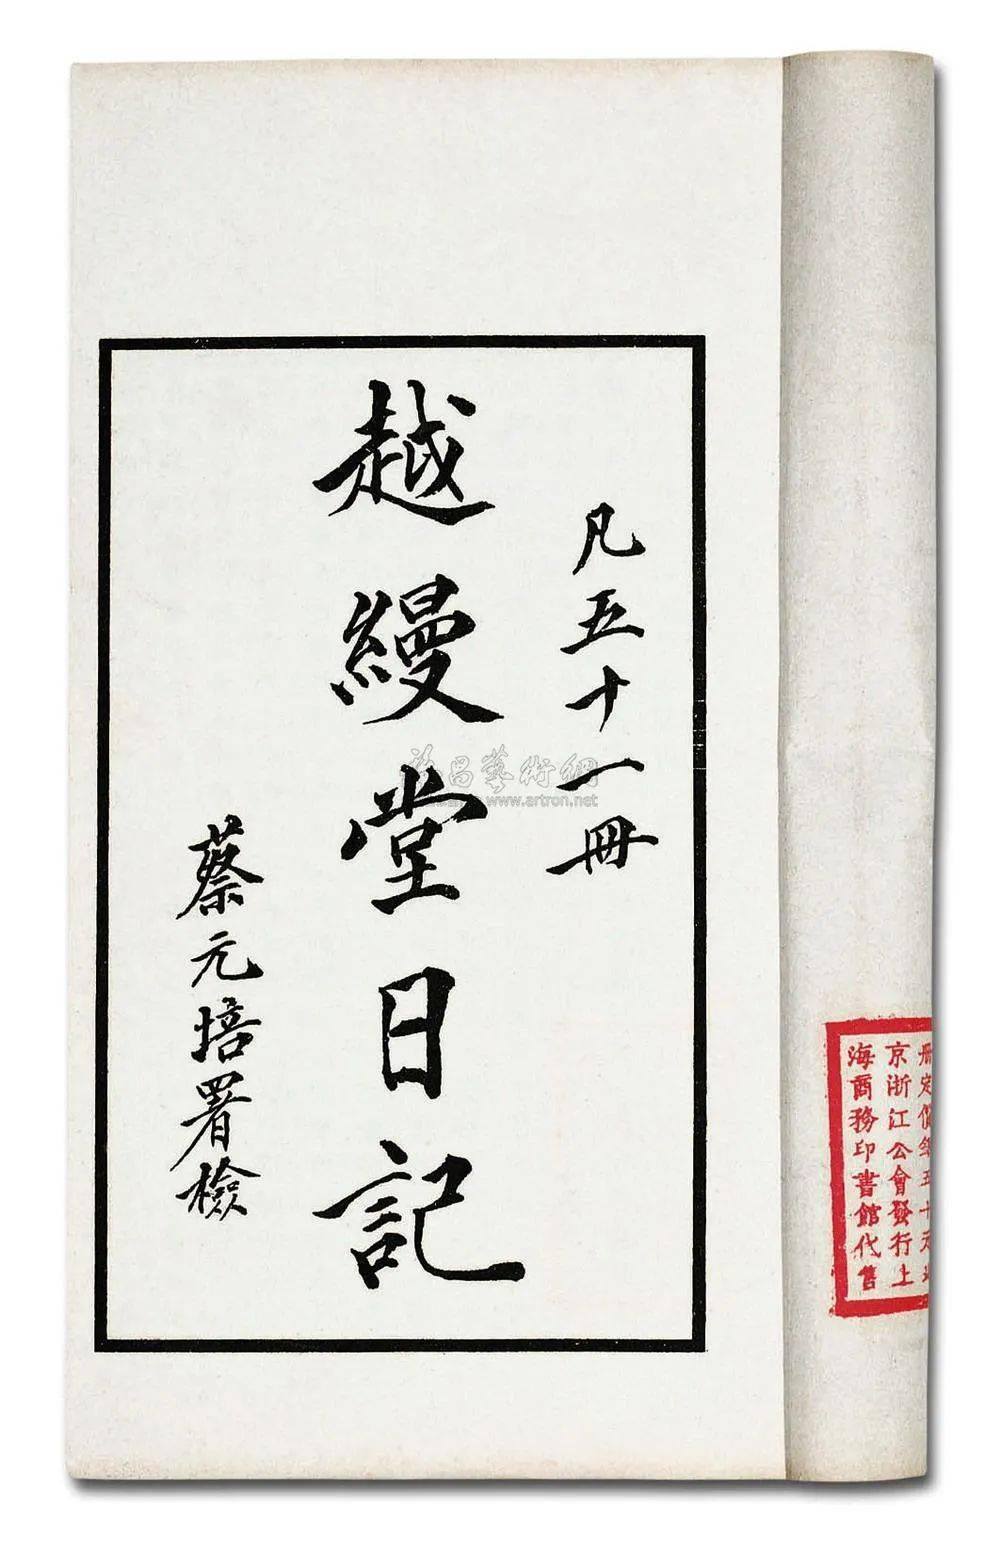 凡五十一冊
越縵堂日記
蔡元培署檢
冊定價銀五十元
京浙江公會發行上
海商務印書館代售
雅昌藝術網
www.artron.net